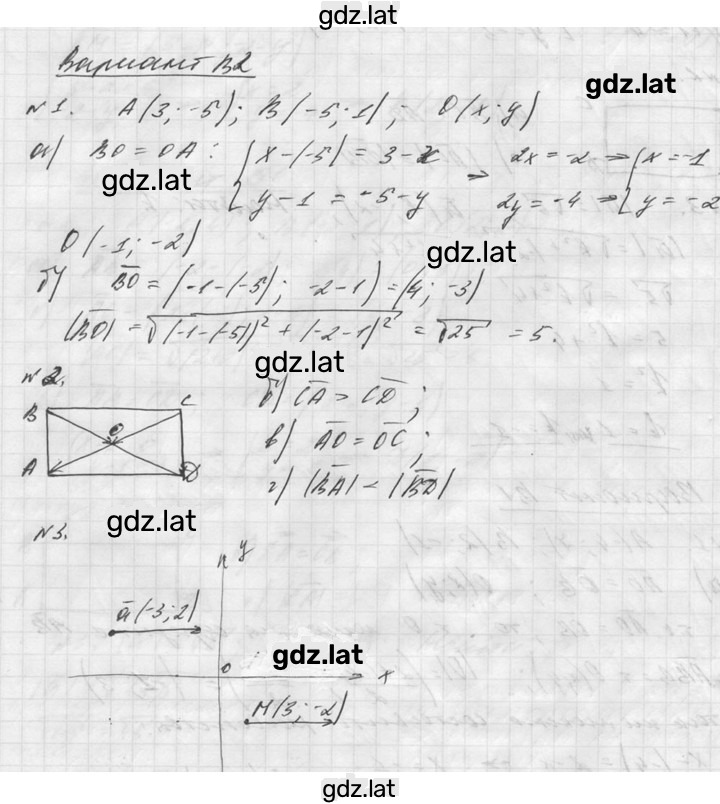 gdz.lat
Вариант В2
gdz.lat
№1. A(3; -5); B(-5; 1); O(x; y)
а) BO = OA: { x-(-5) = 3-x ⇒ 2x = -2 ⇒ { x = -1
y-1 = -5-y 2y = -4 ⇒ y = -2
gdz.lat
O(-1; -2)
gdz.lat
б) B̅O̅ = (-1-(-5); -2-1) = (4; -3)
|B̅O̅| = √(-1-(-5))² + (-2-1)² = √25 = 5.
gdz.lat
№2.
B C
O
A D
б) C̅A̅ > C̅D̅;
в) A̅O̅ = O̅C̅;
г) |B̅A̅| < |B̅D̅|
gdz.lat
№3.
y
a̅(-3; 2)
gdz.lat
0
x
M(3; -2)
gdz.lat